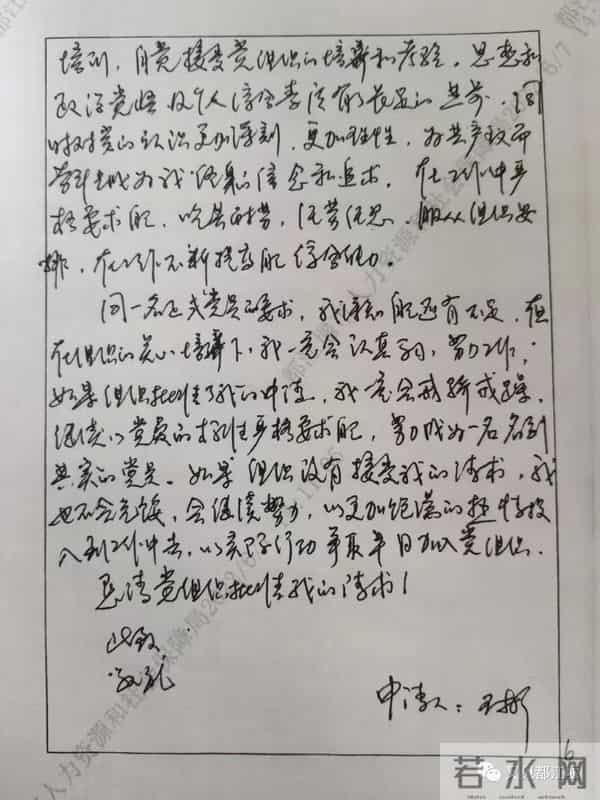 培训，自觉接受党组织的培养和考验，思想和
政治觉悟及个人综合素质有了长足的进步，同
时对党的认识更加深刻，更加理性，为共产主义而
奋斗已成为我终身的信念和追求。在工作中严
格要求自己，吃苦耐劳，任劳任怨，服从组织安
排，在工作中不断提高自己综合能力。
同一名正式党员的要求，我深知自己还有不足，但
在组织的关心培养下，我一定会认真学习，努力工作；
如果组织批准了我的申请，我一定会戒骄戒躁，
继续以党员的标准严格要求自己，努力成为一名名副
其实的党员。如果组织没有接受我的请求，我
也不会气馁，会继续努力，以更加饱满的热情投
入到工作中去，以实际行动争取早日加入党组织。
恳请党组织批准我的请求！
此致
敬礼
申请人：王彬
6
若水网